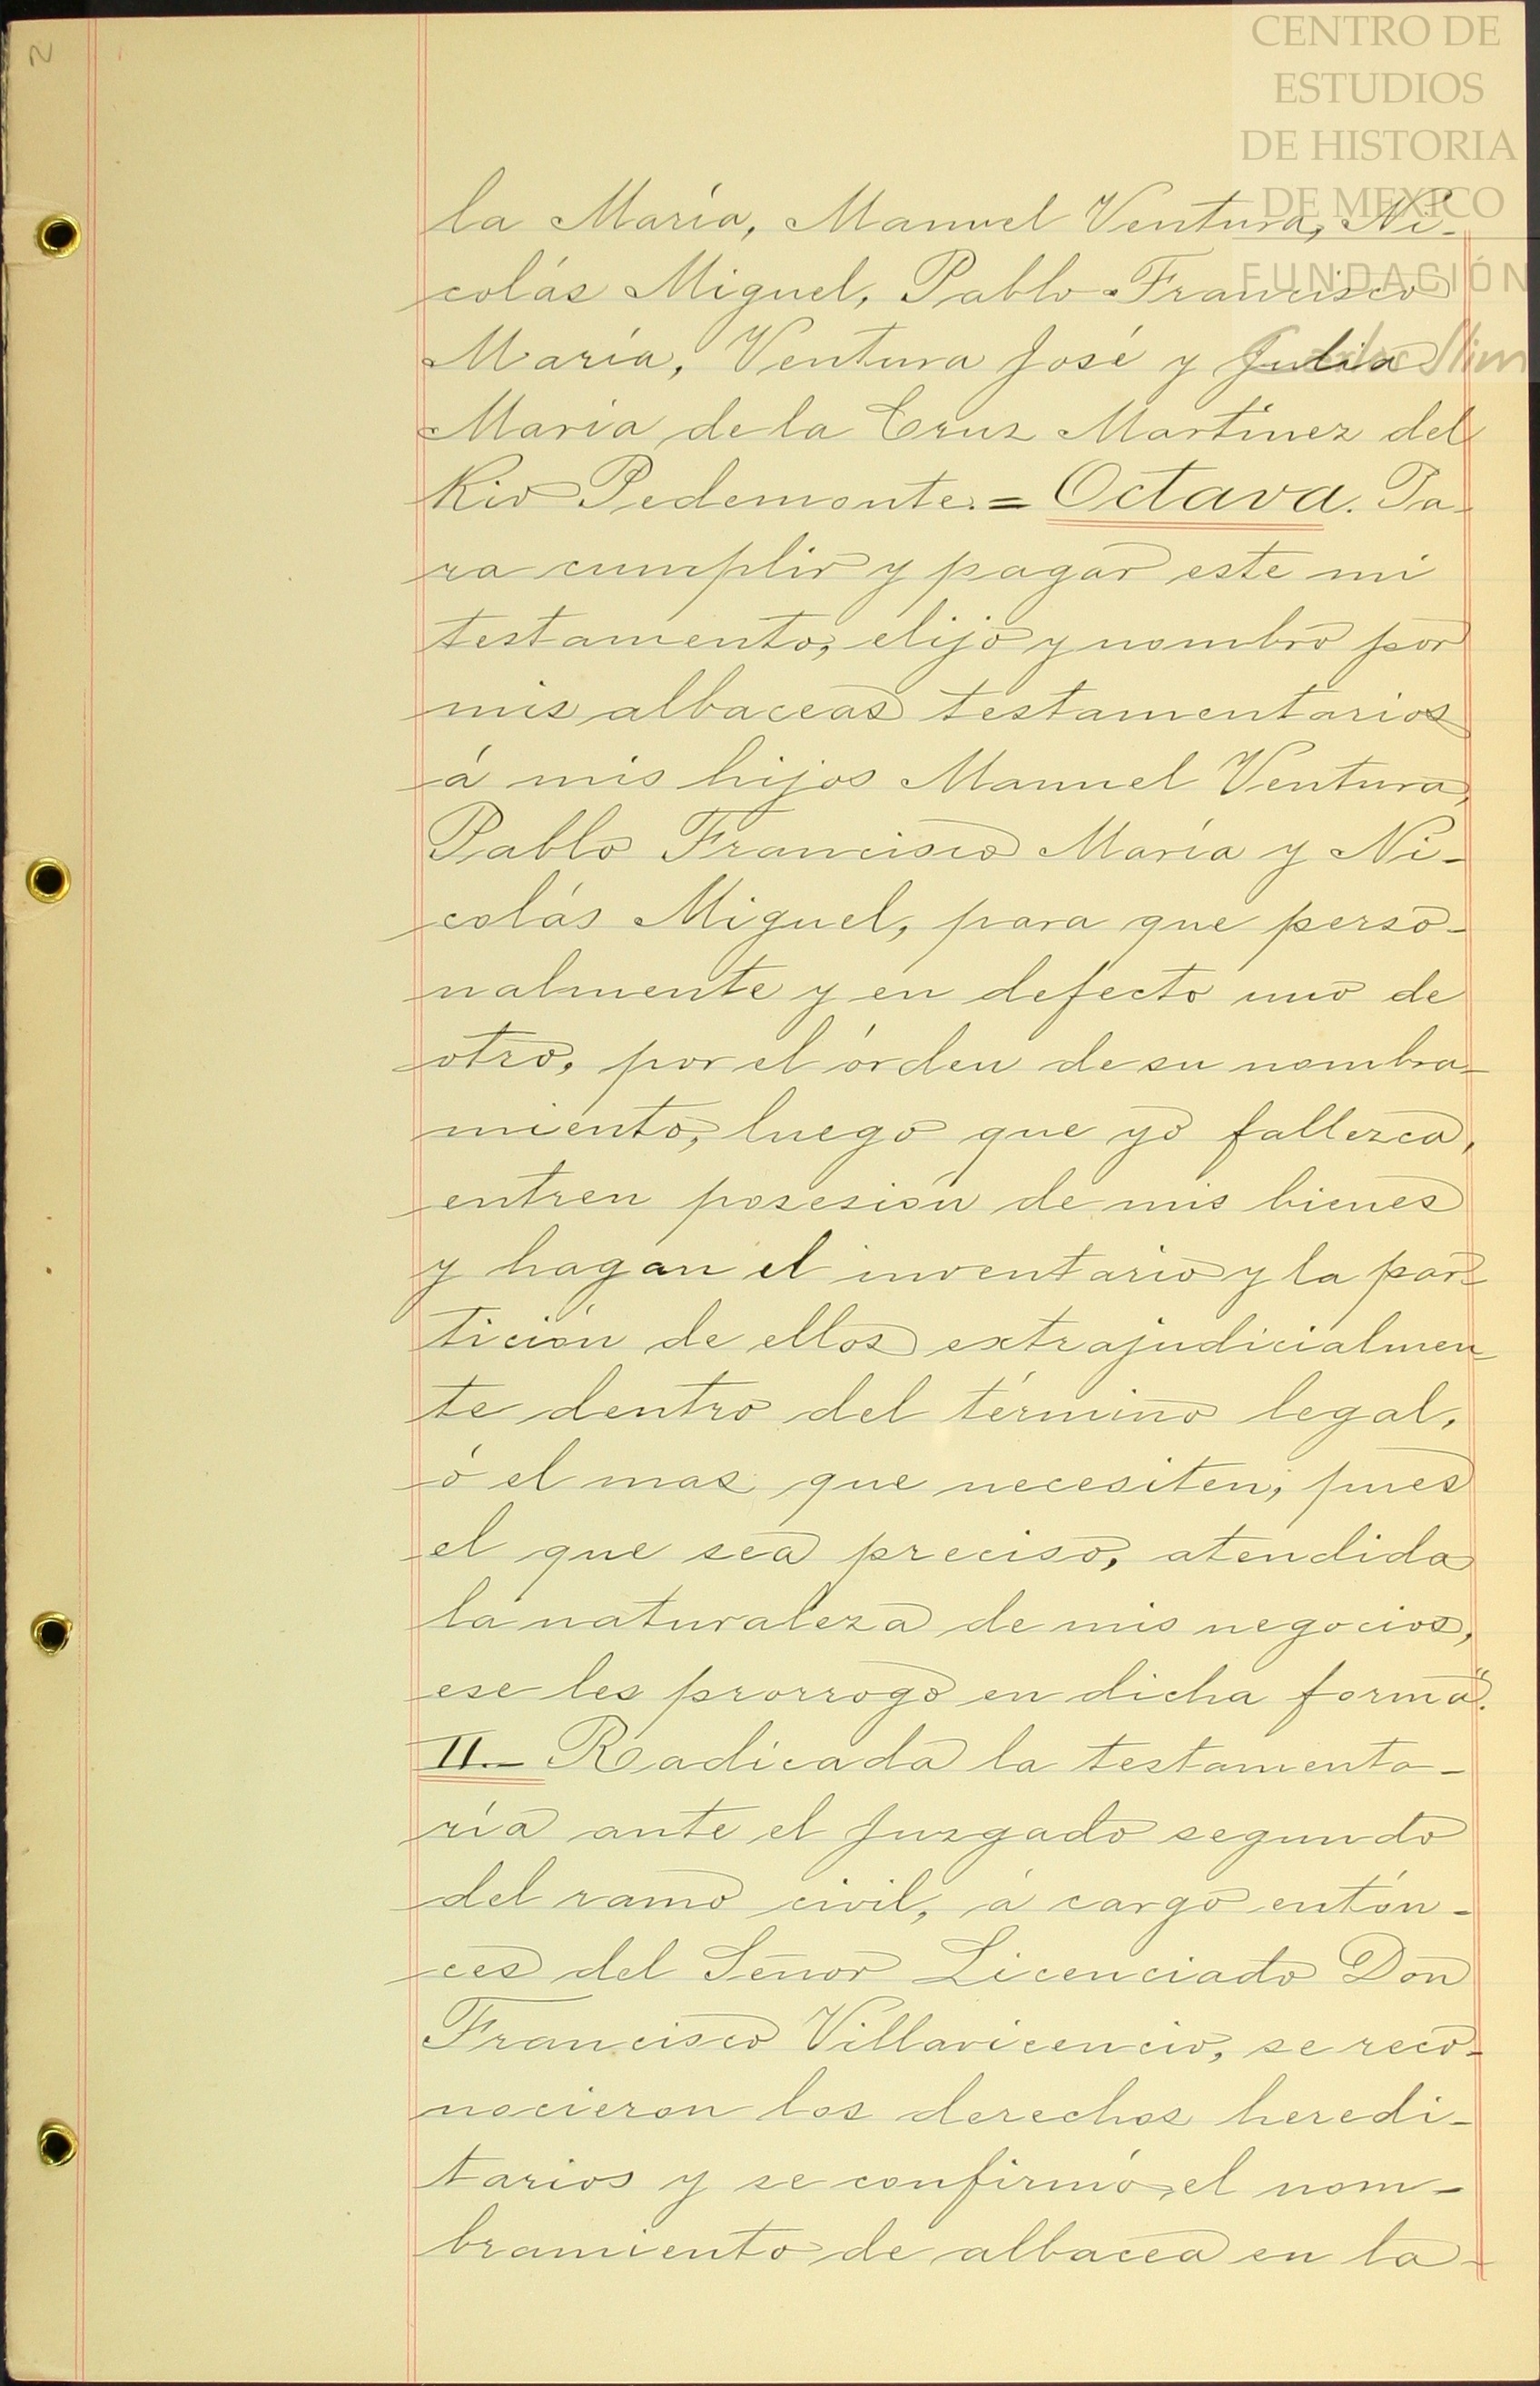 2
CENTRO DE
ESTUDIOS
DE HISTORIA
DE MEXICO
FUNDACIÓN
Carlos Slim
la María, Manuel Ventura, Ni-
colás Miguel, Pablo Francisco
María, Ventura José y Julia
María de la Cruz Martínez del
Rio Pedemonte.= Octava. Pa-
ra cumplir y pagar este mi
testamento, elijo y nombro por
mis albaceas testamentarios
á mis hijos Manuel Ventura,
Pablo Francisco María y Ni-
colás Miguel, para que perso-
nalmente y en defecto uno de
otro, por el órden de su nombra-
miento, luego que yo fallezca,
entren posesión de mis bienes
y hagan el inventario y la par-
tición de ellos extrajudicialmen-
te dentro del término legal,
ó el mas que necesiten; pues
el que sea preciso, atendida
la naturaleza de mis negocios,
ese les prorrogo en dicha forma".
II.- Radicada la testamenta-
ría ante el Juzgado segundo
del ramo civil, á cargo entón-
ces del Señor Licenciado Don
Francisco Villavicencio, se reco-
nocieron los derechos heredi-
tarios y se confirmó el nom-
bramiento de albacea en la-